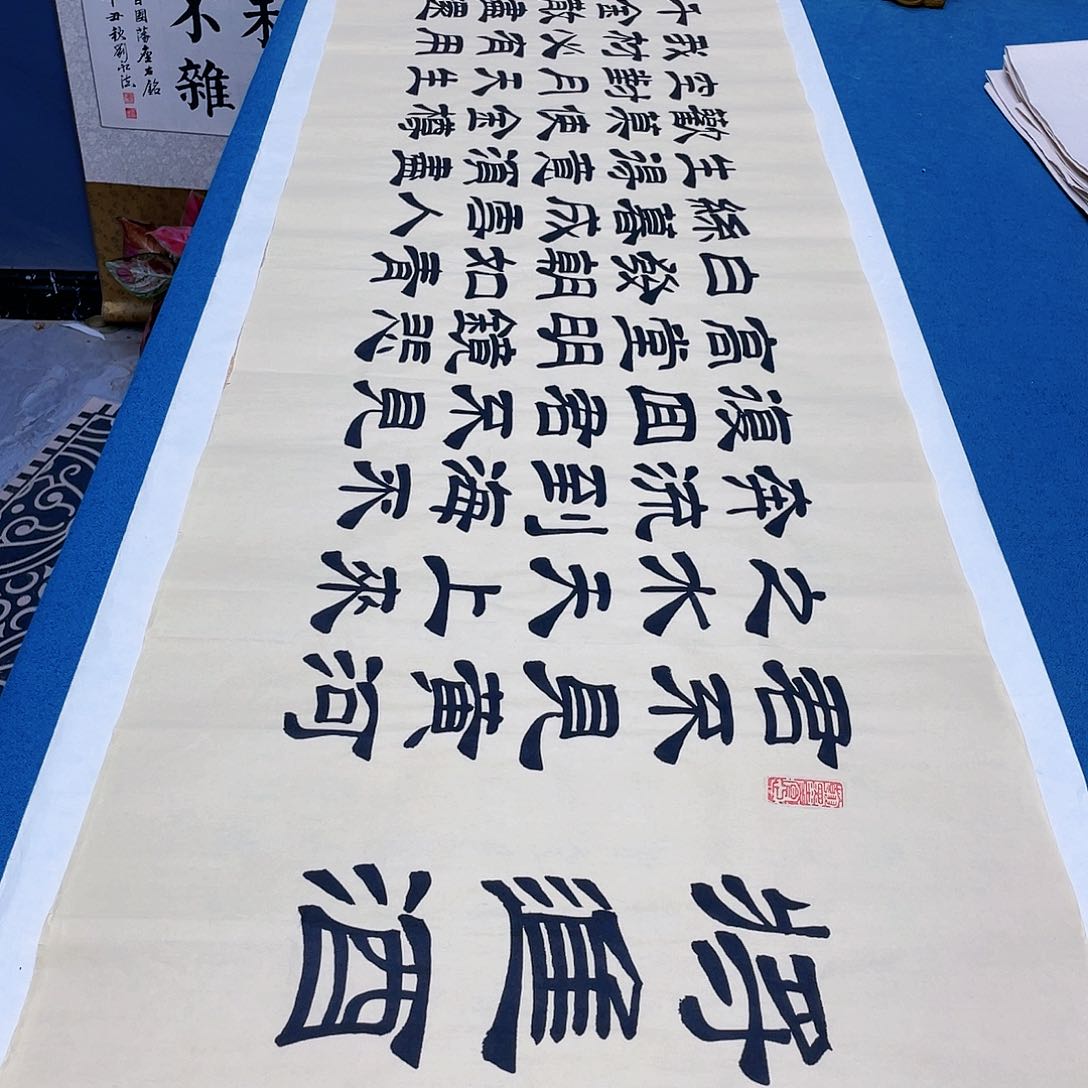 將進酒
君不見黃河
之水天上來
奔流到海不
復回君不見
高堂明鏡悲
白發朝如青
絲暮成雪人
生得意須盡
歡莫使金樽
空對月天生
我材必有用
千金散盡還
不雜
國藩座右銘
丑秋劉